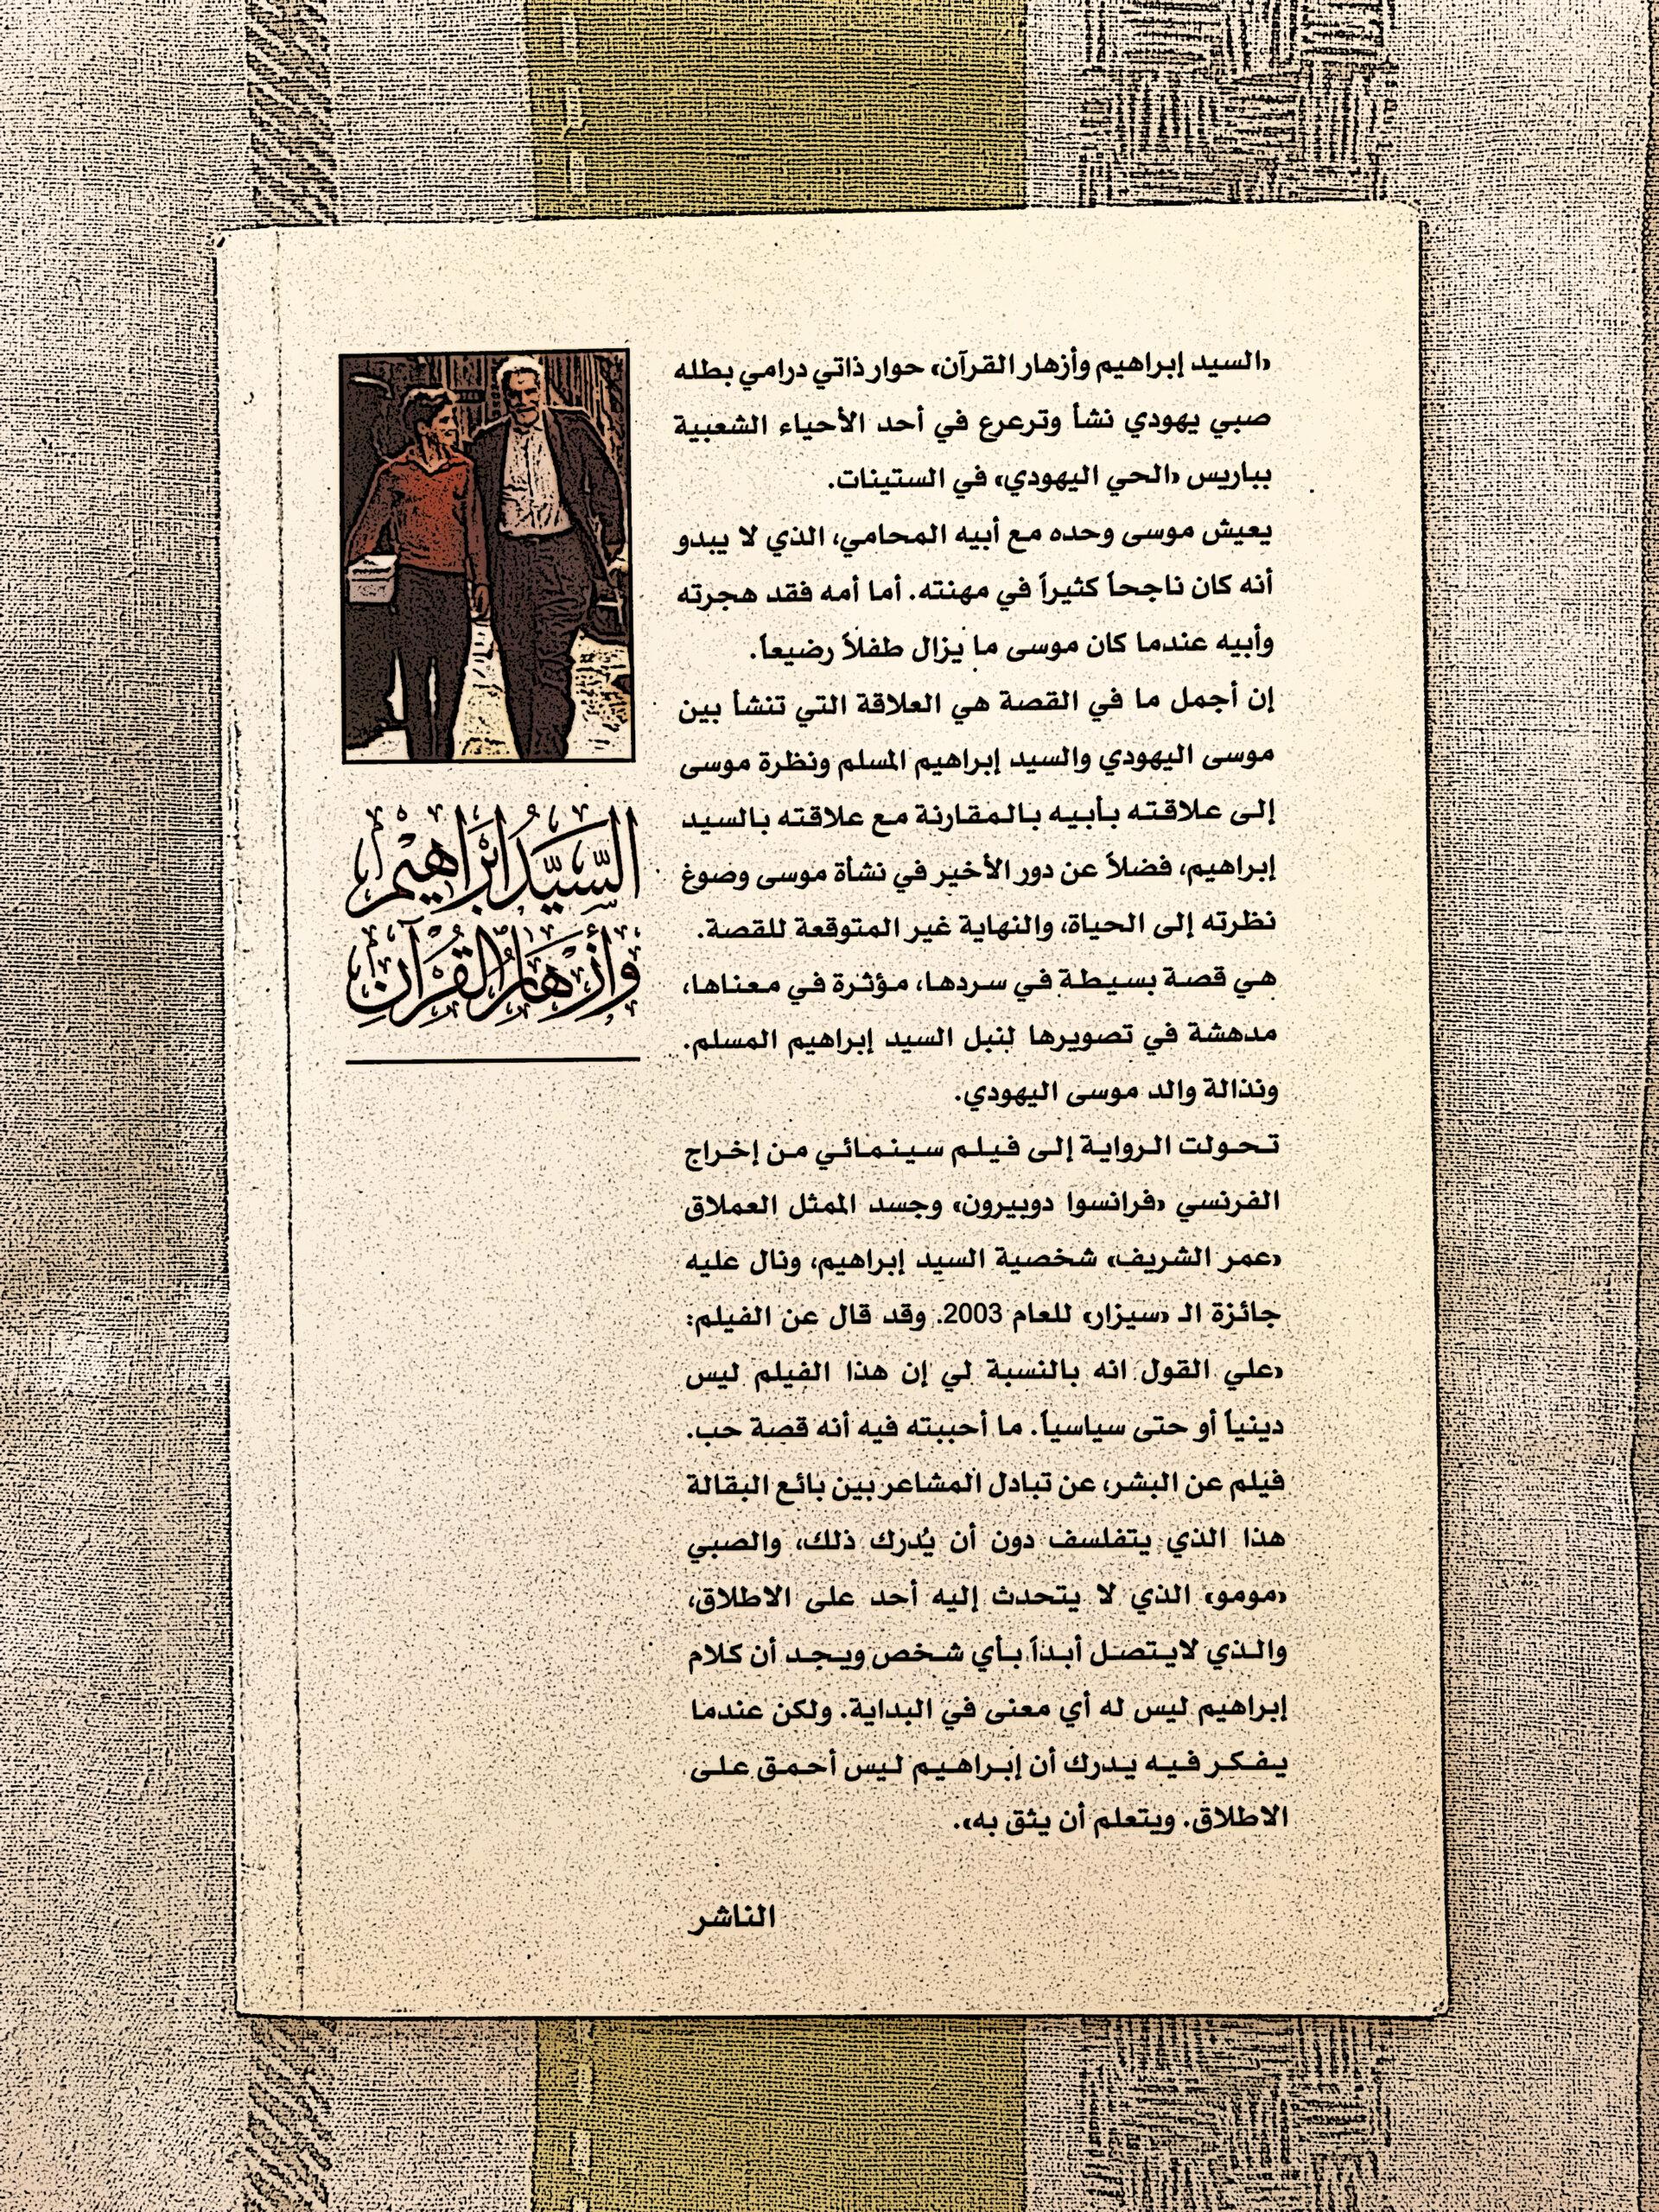 «السيد إبراهيم وأزهار القرآن» حوار ذاتي درامي بطله
صبي يهودي نشأ وترعرع في أحد الأحياء الشعبية
بباريس «الحي اليهودي» في الستينات.
يعيش موسى وحده مع أبيه المحامي، الذي لا يبدو
أنه كان ناجحاً كثيراً في مهنته. أما أمه فقد هجرته
وأبيه عندما كان موسى ما يزال طفلاً رضيعاً.
إن أجمل ما في القصة هي العلاقة التي تنشأ بين
موسى اليهودي والسيد إبراهيم المسلم ونظرة موسى
إلى علاقته بأبيه بالمقارنة مع علاقته بالسيد
إبراهيم، فضلاً عن دور الأخير في نشأة موسى وصوغ
نظرته إلى الحياة، والنهاية غير المتوقعة للقصة.
هي قصة بسيطة في سردها، مؤثرة في معناها،
مدهشة في تصويرها لنبل السيد إبراهيم المسلم.
ونذالة والد موسى اليهودي.
تحولت الرواية إلى فيلم سينمائي من إخراج
الفرنسي «فرانسوا دوبيرون» وجسد الممثل العملاق
«عمر الشريف» شخصية السيد إبراهيم، ونال عليه
جائزة الـ «سيزار» للعام 2003. وقد قال عن الفيلم:
«علي القول انه بالنسبة لي إن هذا الفيلم ليس
دينياً أو حتى سياسياً. ما أحببته فيه أنه قصة حب.
فيلم عن البشر، عن تبادل المشاعر بين بائع البقالة
هذا الذي يتفلسف دون أن يُدرك ذلك، والصبي
«مومو» الذي لا يتحدث إليه أحد على الاطلاق،
والذي لايتصل أبداً بأي شخص ويجد أن كلام
إبراهيم ليس له أي معنى في البداية. ولكن عندما
يفكر فيه يدرك أن إبراهيم ليس أحمق على
الاطلاق. ويتعلم أن يثق به».
الناشر
السَّيِّدُ ابْرَاهِيْم
وَأَزْهَارُ القُرْآن